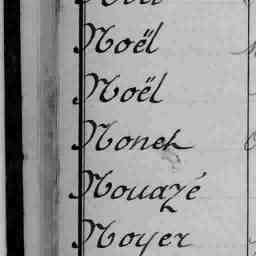 Noël
Noël
Nonck
Nouazé
Noyer